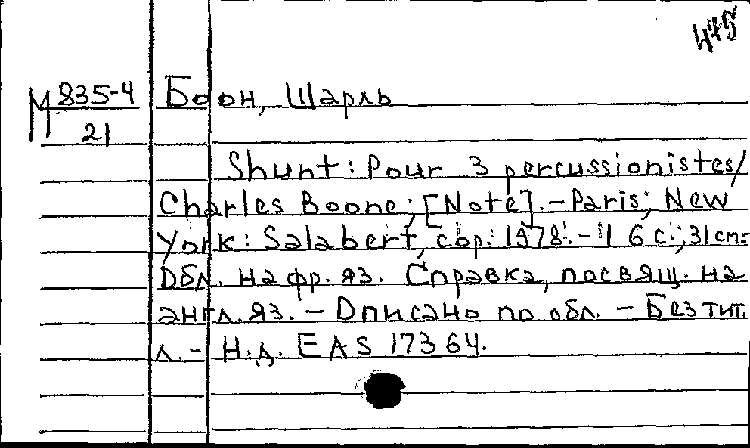 475
М 835-4 Боон, Шарль
21
Shunt: Pour 3 percussionistes/
Charles Boone; [Note]. - Paris; New
York: Salabert, cop. 1978. - 16 с.; 31 cm.
Обл. на фр. яз. Справка, посвящ. на
англ. яз. - Описано по обл. - Без тит.
л. - Н.д. EAS 17364.